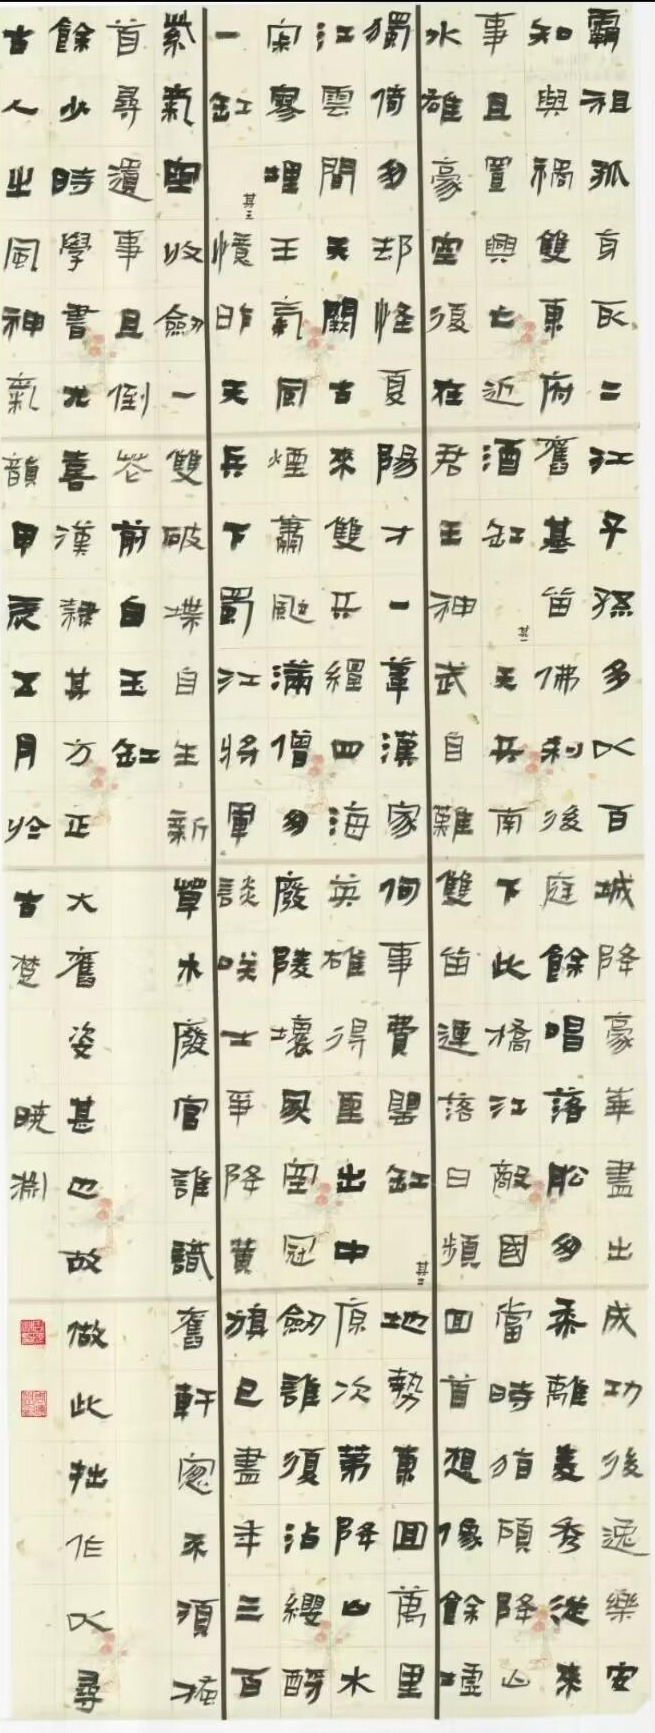 霸祖孤身取二江子孫多以百城降豪華盡出成功後逸樂安
知與禍雙東府舊基留佛刹後庭餘唱落船窗黍離麥秀從來
事且置興亡近酒缸 其一 天兵南下此橋江敵國當時指顧降山
水雄豪空復在君王神武自難雙留連落日頻回首想像餘墟
獨倚窗却怪夏陽才一葦漢家何事費罌缸 其二 地勢東回萬里
江雲間天闕古來雙兵纏四海英雄得聖出中原次第降山水
寂寥埋王氣風煙蕭颯滿僧窗廢陵壞冢空冠劍誰復沾纓酹
一缸 其三 憶昨天兵下蜀江將軍談笑士爭降黃旗已盡年三百
紫氣空收劍一雙破堞自生新草木廢宮誰識舊軒窗不須搔
首尋遺事且倒花前白玉缸
餘少時學書尤喜漢隸其方正大舊姿甚也故做此拙作以尋
古人之風神氣韻甲辰五月於古楚 曉淵